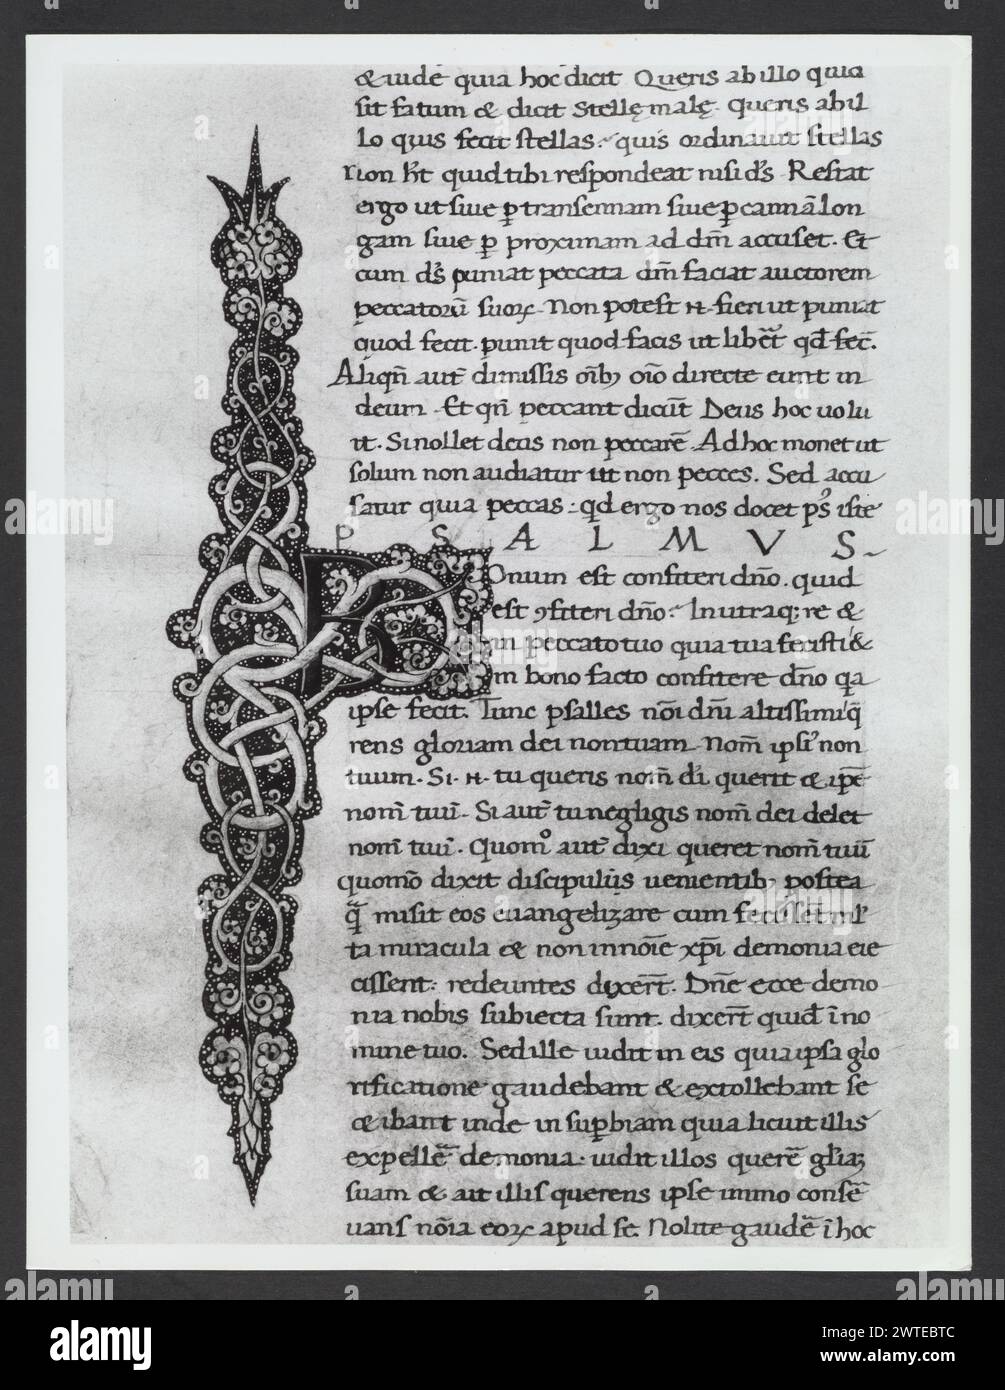 & uide quia hoc dicit Queris ab illo quid
sit fatum & dicit Stellę malę. queris ab il
lo quis fecit stellas. quis ordinauit stellas
non ht̄ quid tibi respondeat nisi ds̄. Restat
ergo ut siue ꝑ transennam siue ꝑ cannā lon
gam siue ꝑ proximam ad dm̄ accuset. Et
cum ds̄ puniat peccata dm̄ faciat auctorem
peccatorū suoꝝ. Non potest .n. fieri ut puniat
quod fecit. punit quod facis ut liberet qđ fec̄.
Aliqn̄ aut̄ dimissis om̄ib; directe eunt in
deum. Et qn̄ peccant dicūt Deus hoc uolu
it. Si nollet deus non peccarē. Ad hoc monet ut
solum non audiatur ut non pecces. Sed accu
satur quia peccas: qđ ergo nos docet ps̄ iste
PSALMVS
BOnum est confiteri dn̄o. quid
est ꝯfiteri dn̄o. In utraq; re &
in peccato tuo quia tua fecisti &
in bono facto confitere dn̄o qa
ipse fecit. Tunc psalles nōi dn̄i altissimi q̄
rens gloriam dei non tuam. Nom̄ ipsi' non
tuum. Si .n. tu queris nom̄ di querit & ip̄e
nom̄ tuū. Si aut̄ tu negligis nom̄ dei delet
nom̄ tuū. Quomo aut̄ dixi queret nom̄ tuū
quomō dixit discipulis uenientib; postea
q̄ misit eos euangelizare cum fecissent ml'
ta miracula & non in nōie xp̄i demonia eie
cissent: redeuntes dixer̄t. Dn̄e ecce demo
nia nobis subiecta sunt. dixer̄t quid ī no
mine tuo. Sed ille uidit in eis quia ipsa glo
rificatione gaudebant & extollebant se
& ibant inde in supbiam quia licuit illis
expellē demonia. uidit illos querē gl'iaꝫ
suam & ait illis querens ipse immo conser
uans nōia eoꝝ apud se. Nolite gaudē ī hoc
alamy
2WTEBTC
www.alamy.com